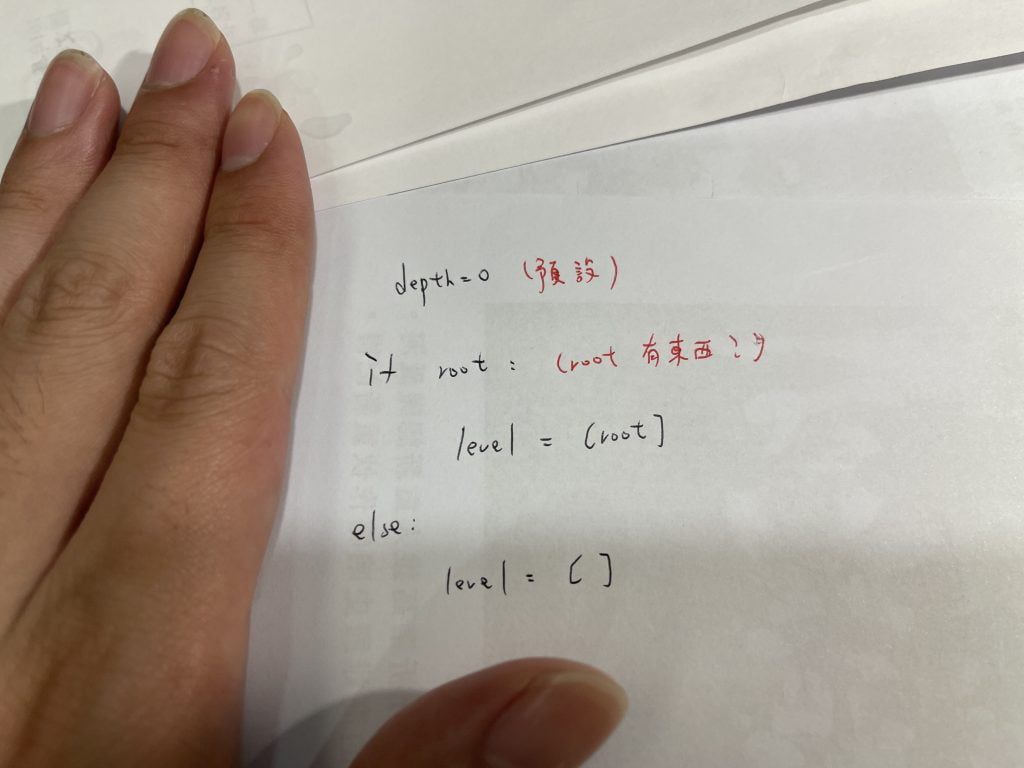 depth=0 (預設)
if root : (root 有東西
level = [root]
else:
level = [ ]